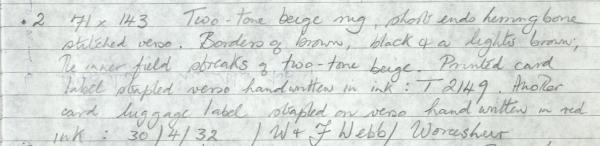 .2 71 x 143 Two-tone beige rug, short ends herring bone
stitched verso. Borders of brown, black & a lighter brown;
The inner field streaks of two-tone beige. Printed card
label stapled verso handwritten in ink: T2149. Another
card luggage label stapled on verso hand written in red
ink : 30/4/32 / W & F Webb/